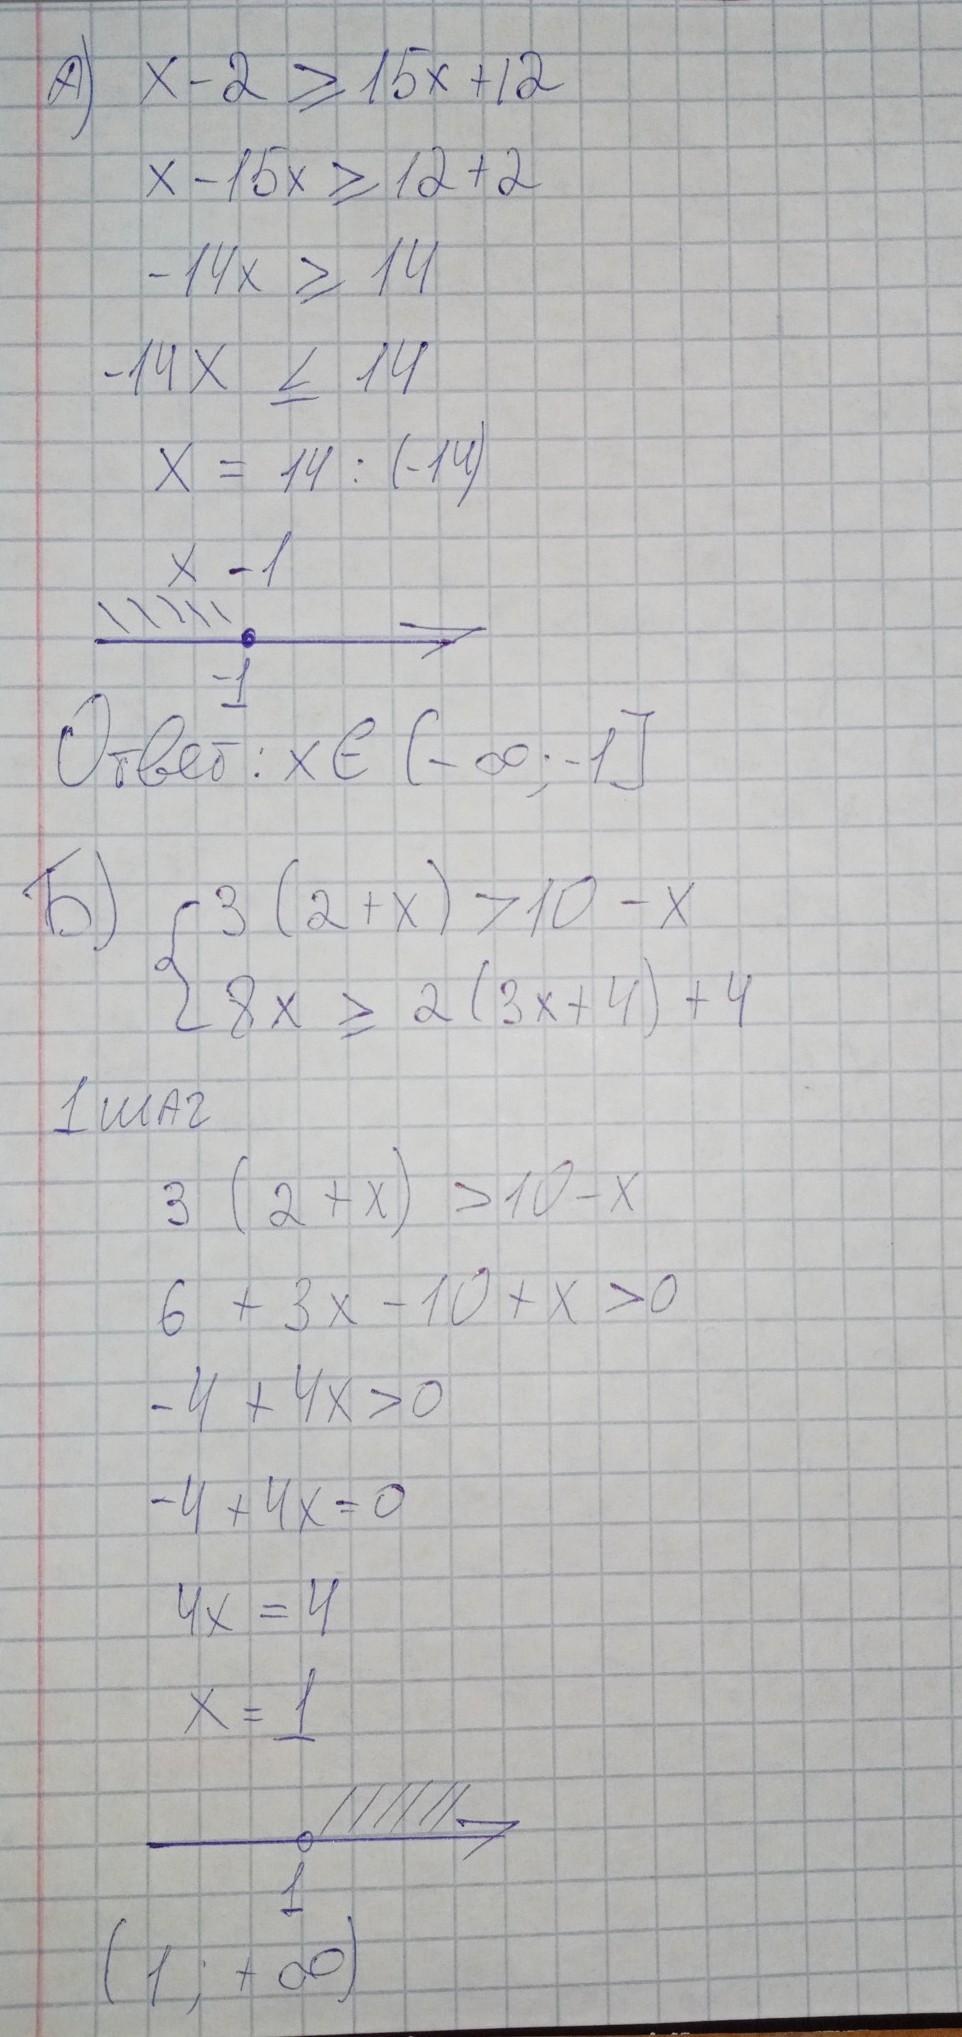 А) x-2 ≥ 15x+12
x-15x ≥ 12+2
-14x ≥ 14
-14x ≤ 14
x = 14 : (-14)
x -1
-1
Ответ: x∈ (-∞; -1]
Б) { 3 (2+x) > 10 - x
8x ≥ 2(3x+4)+4
1 шаг
3 (2+x) > 10-x
6 + 3x - 10 + x > 0
-4 + 4x > 0
-4 + 4x = 0
4x = 4
x = 1
1
(1; +∞)